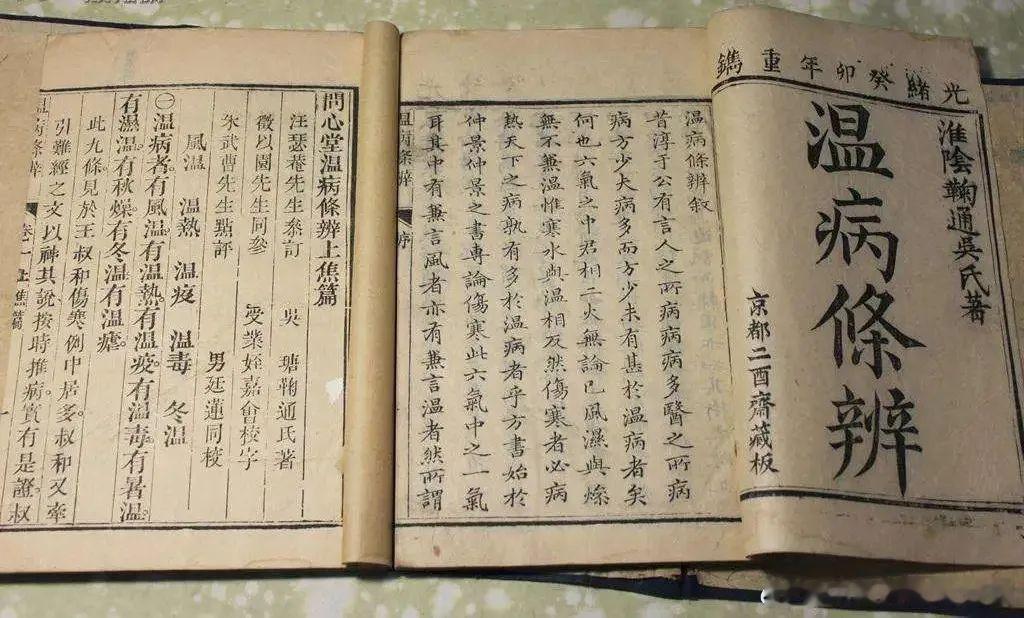 光緒癸卯年重鐫
淮陰鞠通吳氏著
温病條辨
京都二酉齋藏板
温病條辨叙
昔淳于公有言人之所病病病多醫之所病
病方少夫病多而方少未有甚於温病者矣
何也六氣之中君相二火無論已風濕與燥
無不兼温惟寒水與温相反然傷寒者必病
熱天下之病孰有多於温病者乎方書始於
仲景仲景之書專論傷寒此六氣中之一氣
耳其中有兼言風者亦有兼言温者然所謂
温病條辨 序
問心堂温病條辨上焦篇
汪瑟菴先生參訂 吳 瑭鞠通氏著
徵以園先生同參 受業姪嘉會校字
朱武曹先生點評 男廷蓮同校
風温 温熱 温疫 温毒 冬温
㊀温病者。有風温有温熱有温疫有温毒有暑温。
有濕温有秋燥有冬温有温瘧。
此九條見於王叔和傷寒例中居多。叔和又牽
引難經之文以神其說。按時推病實有是證叔
温病條辨 卷一上焦篇